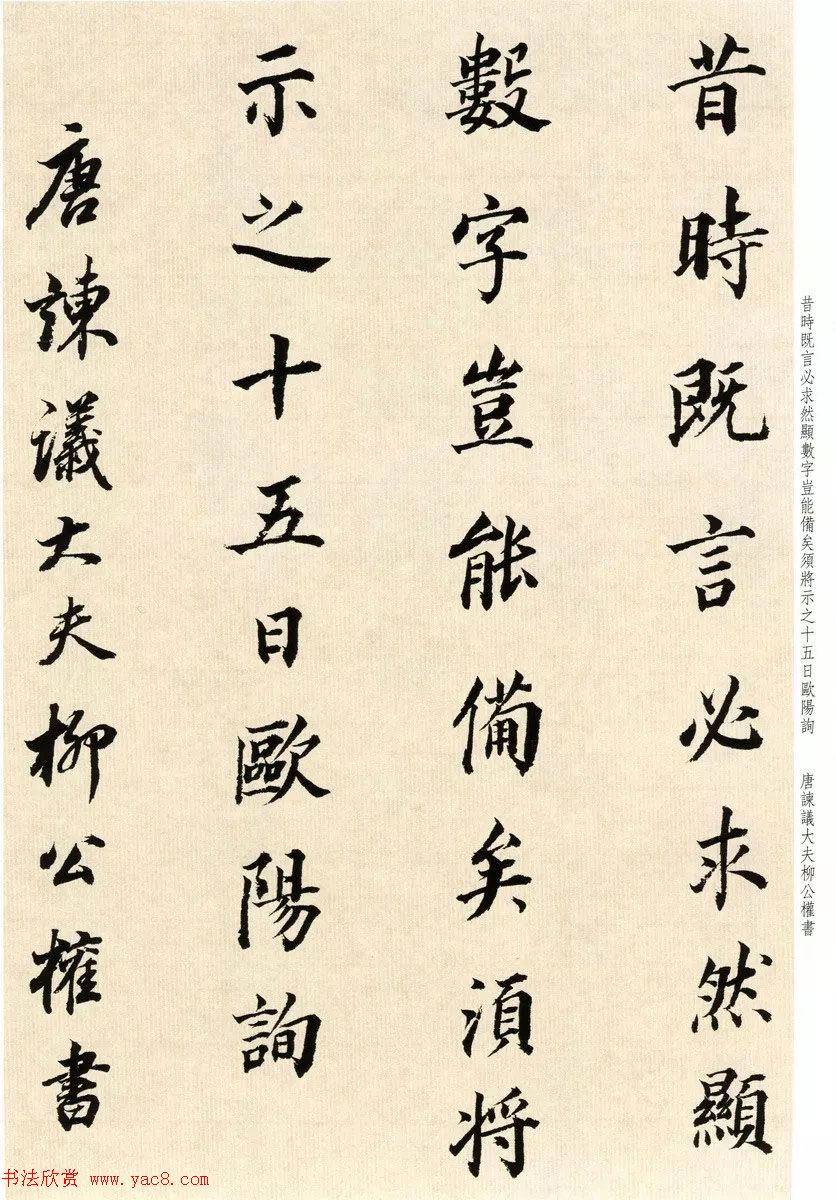 昔時既言必求然顯
數字豈能備矣須將
示之十五日歐陽詢
唐諫議大夫柳公權書
昔時既言必求然顯數字豈能備矣須將示之十五日歐陽詢 唐諫議大夫柳公權書
书法欣赏 www.yac8.com